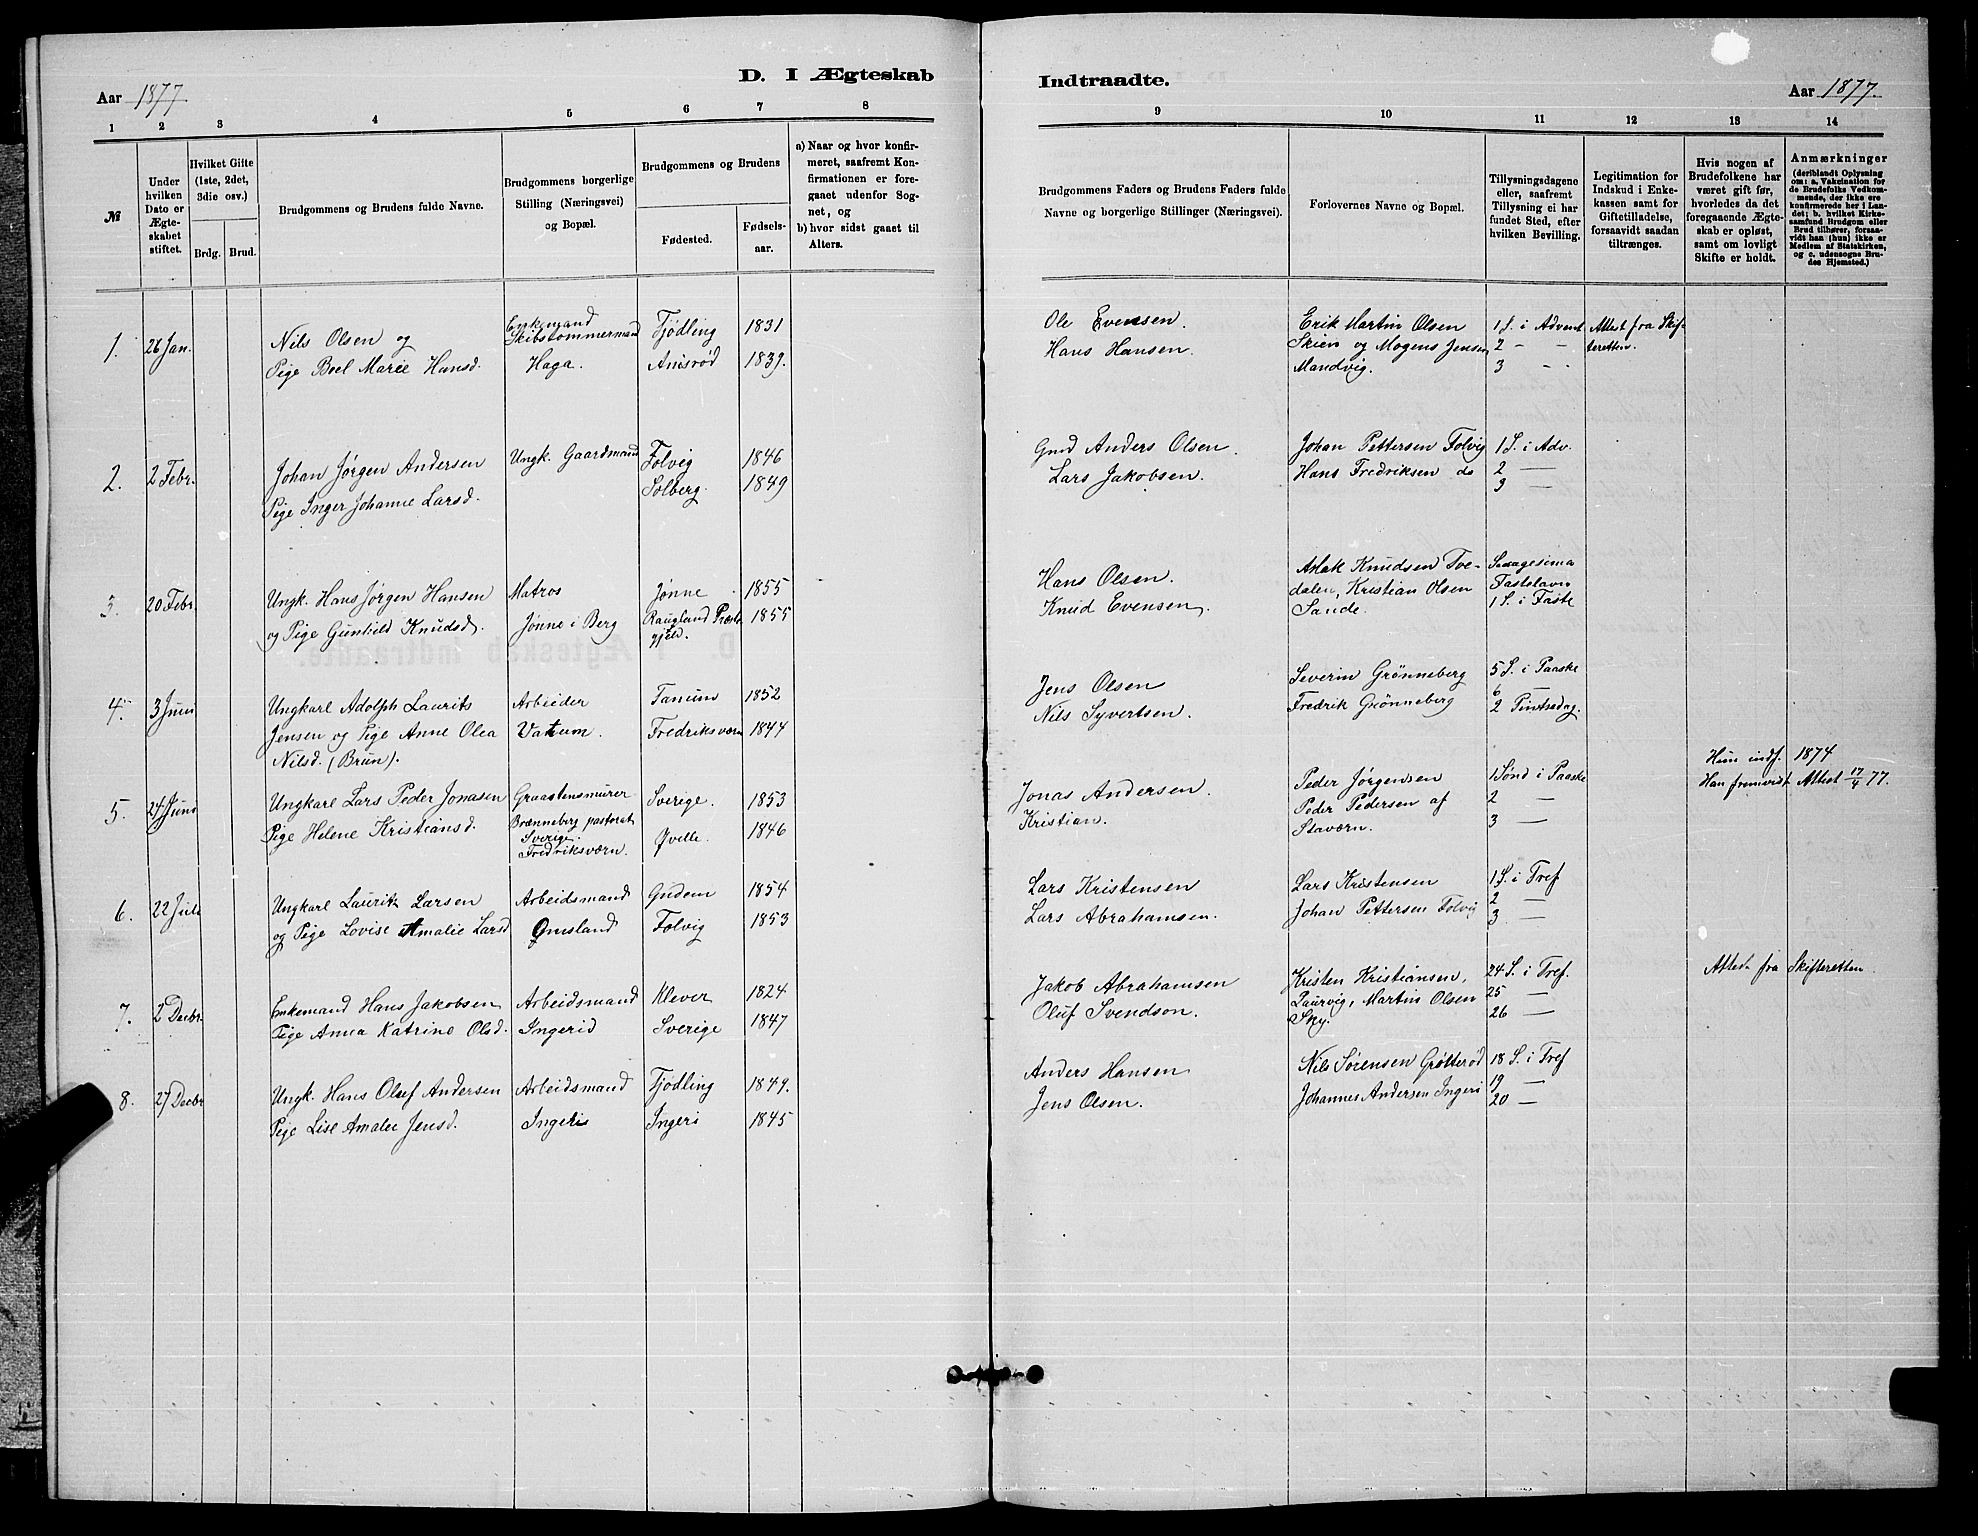 D. I Ægteskab
Indtraadte.
Aar 1877
Aar 1877.
1 2 3 4 5 6 7 8
9 10 11 12 13 14
№
Under hvilken Dato er Ægteskabet stiftet.
Hvilket Gifte (1ste, 2det, 3die osv.)
Brdg. Brud.
Brudgommens og Brudens fulde Navne.
Brudgommens borgerlige Stilling (Næringsvei) og Bopæl.
Brudgommens og Brudens
Fødested.
Fødselsaar.
a) Naar og hvor konfirmeret, saafremt Konfirmationen er foregaaet udenfor Sognet, og
b) hvor sidst gaaet til Alters.
Brudgommens Faders og Brudens Faders fulde Navne og borgerlige Stillinger (Næringsvei).
Forlovernes Navne og Bopæl.
Tillysningsdagene eller, saafremt Tillysning ei har fundet Sted, efter hvilken Bevilling.
Legitimation for Indskud i Enkekassen samt for Giftetilladelse, forsaavidt saadan tiltrænges.
Hvis nogen af Brudefolkene har været gift før, hvorledes da det foregaaende Ægteskab er opløst, samt om lovligt Skifte er holdt.
Anmærkninger
(deriblandt Oplysning om: a. Vakcination for de Brudefolks Vedkommende, der ikke ere konfirmerede her i Landet; b. hvilket Kirkesamfund Brudgom eller Brud tilhører, forsaavidt han (hun) ikke er Medlem af Statskirken, og c. udensogns Brudes Hjemsted.)
1. 26 Jan. Nils Olsen og Enkemand Skibstømmermand Tjødling 1831
Pige Boel Marie Hansd. Haga. Anisrød 1839.
Ole Evensen. Erik Martin Olsen 1 S. i Advent Attest fra Skif-
Hans Hansen. Skien og Mogens Jensen 2 - - teretten.
Mandvig. 3 - -
2. 2 Febr. Johan Jørgen Andersen Ungk. Gaardmand Folvig 1846
Pige Inger Johanne Larsd. Solberg. 1849
Gmd Anders Olsen. Johan Pettersen Folvig 1 S. i Adv.
Lars Jakobsen. Hans Fredriksen do 2 —
3 —
3. 20 Febr. Ungk. Hans Jørgen Hansen Matros Jønne 1855
og Pige Gunhild Knudsd. Jønne i Berg Raugland Præste- 1855
gjeld.
Hans Olsen. Aslak Knudsen Tve-
Knud Evensen. dalen, Kristian Olsen Fastelavn
Sande. 1 S. i Faste
4. 3 Juni Ungkarl Adolph Laurits Arbeider Tanum 1852
Jensen og Pige Anne Olea Vatum. Fredriksværn 1844
Nilsd. (Brun).
Jens Olsen Severin Grønneberg 5 S. i Paaske
Nils Syvertsen. Fredrik Grønneberg 6 —
2 Pintsedag.
5. 24 Juni Ungkarl Lars Peder Jonasen Graastensmurer Sverige. 1853
Pige Helene Kristiansd. Brænneberg pastorat Sverige. Fredriksværn. Øville. 1846
Jonas Andersen. Peder Jørgensen 1 Sønd i Paaske Hun indf. 1874
Kristian. Peder Pedersen af 2 — Han fremvist Attest 17/4 77.
Staværn. 3 —
6. 22 Juli Ungkarl Laurits Larsen Arbeidsmand Gudem 1854
og Pige Lovise Amalie Larsd Ømsland Folvig 1853
Lars Kristensen Lars Kristensen 1 S. i Tref
Lars Abrahamsen. Johan Pettersen Folvig 2 —
3 —
7. 2 Decbr. Enkemand Hans Jakobsen Arbeidsmand Klever 1824
Pige Anna Katrine Olsd. Ingerid Sverige 1847
Jakob Abrahamsen Kristen Kristiansen, 24 S. i Tref. Attest fra Skifteretten.
Oluf Svendson. Laurvig, Martin Olsen 25 —
Sky. 26 —
8. 27 Decbr Ungk. Hans Oluf Andersen Arbeidsmand Tjødling 1849.
Pige Lise Amalie Jensd. Ingeris Ingeri 1845
Anders Hansen Nils Sørensen Grøtterød 18 S. i Tref
Jens Olsen. Johannes Andersen Ingeri 19 —
20 —